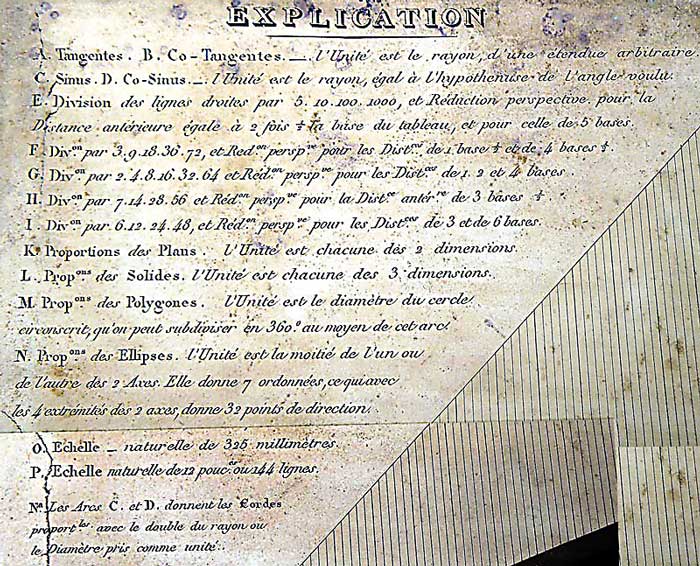 EXPLICATION
A. Tangentes. B. Co-Tangentes. — l'Unité est le rayon, d'une étendue arbitraire.
C. Sinus. D. Co-Sinus. — l'Unité est le rayon, égal à l'hypothenuse de l'angle voulu.
E. Division des lignes droites par 5. 10. 100. 1000, et Réduction perspective pour la
Distance antérieure égale à 2 fois ½ la base du tableau, et pour celle de 5 bases.
F. Div.on par 3. 9. 18. 36. 72, et Red.on persp.ve pour les Dist.ces de 1 base ½ et de 4 bases ½.
G. Div.on par 2. 4. 8. 16. 32. 64 et Red.on persp.ve pour les Dist.ces de 1. 2 et 4 bases.
H. Div.on par 7. 14. 28. 56 et Réd.on persp.ve pour la Dist.ce antér.re de 3 bases ½.
I. Div.on par 6. 12. 24. 48, et Réd.on persp.ve pour les Dist.ces de 3 et de 6 bases.
K. Proportions des Plans. l'Unité est chacune des 2 dimensions.
L. Prop.ons des Solides. l'Unité est chacune des 3 dimensions.
M. Prop.ons des Polygones. l'Unité est le diamètre du cercle
circonscrit, qu'on peut subdiviser en 360° au moyen de cet arc.
N. Prop.ons des Ellipses. l'Unité est la moitié de l'un ou
de l'autre des 2 Axes. Elle donne 7 ordonnées, ce qui avec
les 4 extrémités des 2 axes, donne 32 points de direction.
O. Echelle — naturelle de 325 millimètres.
P. Echelle naturelle de 12 pouc.es ou 144 lignes.
N.a Les Arcs C. et D. donnent les Cordes
proport.les avec le double du rayon ou
le Diamètre pris comme unité.